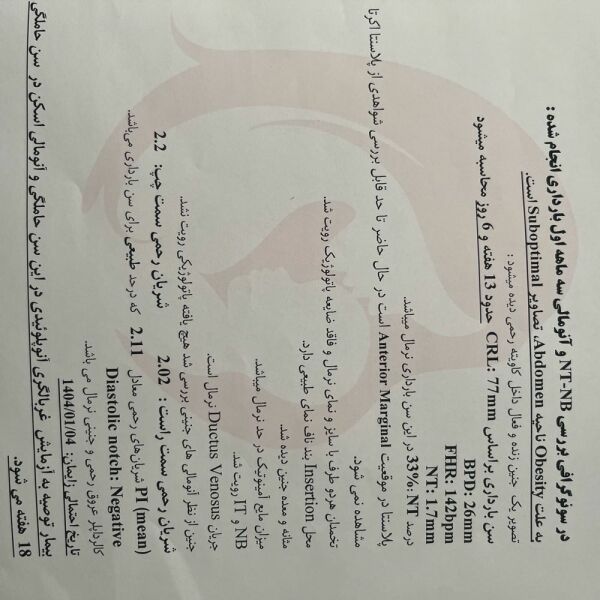 در سونوگرافی بررسی NT-NB و آنومالی سه ماهه اول بارداری انجام شده :
به علت Obesity ناحیه Abdomen، تصاویر Suboptimal است.
تصویر یک جنین زنده و فعال داخل کاویته رحمی دیده میشود :
سن بارداری براساس CRL: 77mm حدود 13 هفته و 6 روز محاسبه میشود
BPD: 26mm
FHR: 142bpm
NT: 1.7mm
درصد NT %33 در این سن بارداری نرمال میباشد.
پلاسنتا در موقعیت Anterior Marginal است در حال حاضر تا حد قابل بررسی شواهدی از پلاسنتا اکرتا
مشاهده نمی شود.
تخمدان هردو طرف با سایز و نمای نرمال و فاقد ضایعه پاتولوژیک رویت شد.
محل Insertion بند ناف نمای طبیعی دارد.
مثانه و معده جنین دیده شد.
میزان مایع آمنیوتیک در حد نرمال میباشد.
NB و IT رویت شد.
جریان Ductus Venosus نرمال است.
جنین از نظر آنومالی های جنینی بررسی شد هیچ یافته پاتولوژیکی رویت نشد.
شریان رحمی سمت راست : 2.02 شریان رحمی سمت چپ: 2.2
PI (mean) شریان‌های رحمی معادل 2.11 که در حد طبیعی برای سن بارداری می‌باشد.
Diastolic notch: Negative
کالرداپلر عروق رحمی و جنینی نرمال می باشد.
تاریخ احتمالی زایمان: 1404/01/04
بیمار توصیه به آزمایش غربالگری آنوپلوئیدی در این سن حاملگی و آنومالی اسکن در سن حاملگی
18 هفته می شود.